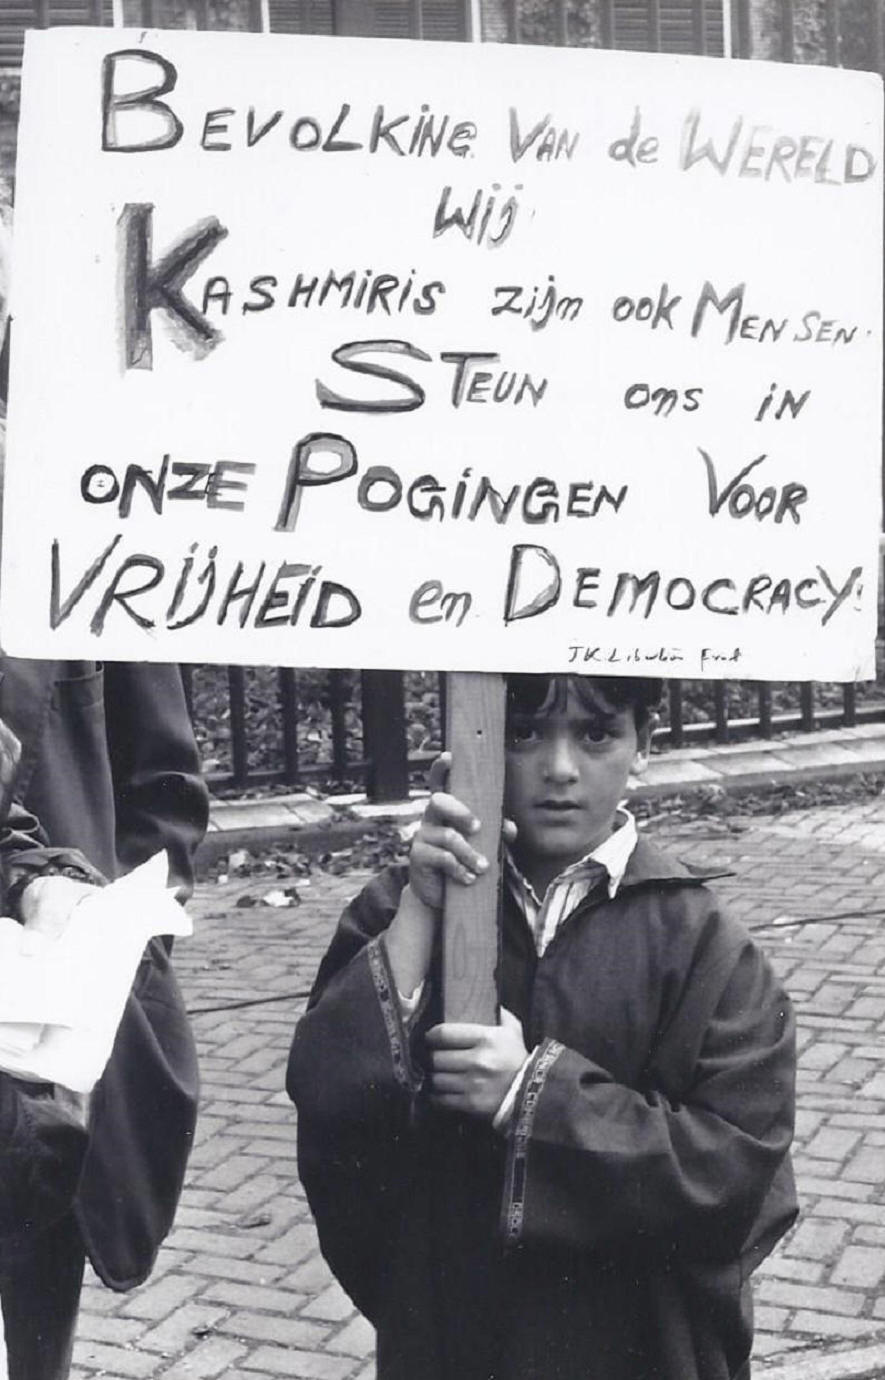 BEVOLKING VAN de WERELD
Wij
KASHMIRIS zijn ook MENSEN.
STEUN ons iN
ONZE POGINGEN VOOR
VRIJHEID en DEMOCRACY!
JK Liberation Front